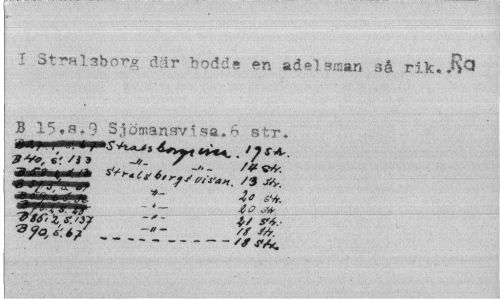 I Stralsborg där bodde en adelsman så rik..Ra
B 15.s.9 Sjömansvisa.6 str.
Stralsborgsvisa. 19 str.
B 40, s. 133 -"- -"- 14 str.
Stralsbergsvisan. 13 str.
-"- 20 str.
-"- 20 str.
B 86:2, s. 137 -"- 21 str.
-"- 18 str.
B 90, s. 67 - - - - - - - - - 18 str.